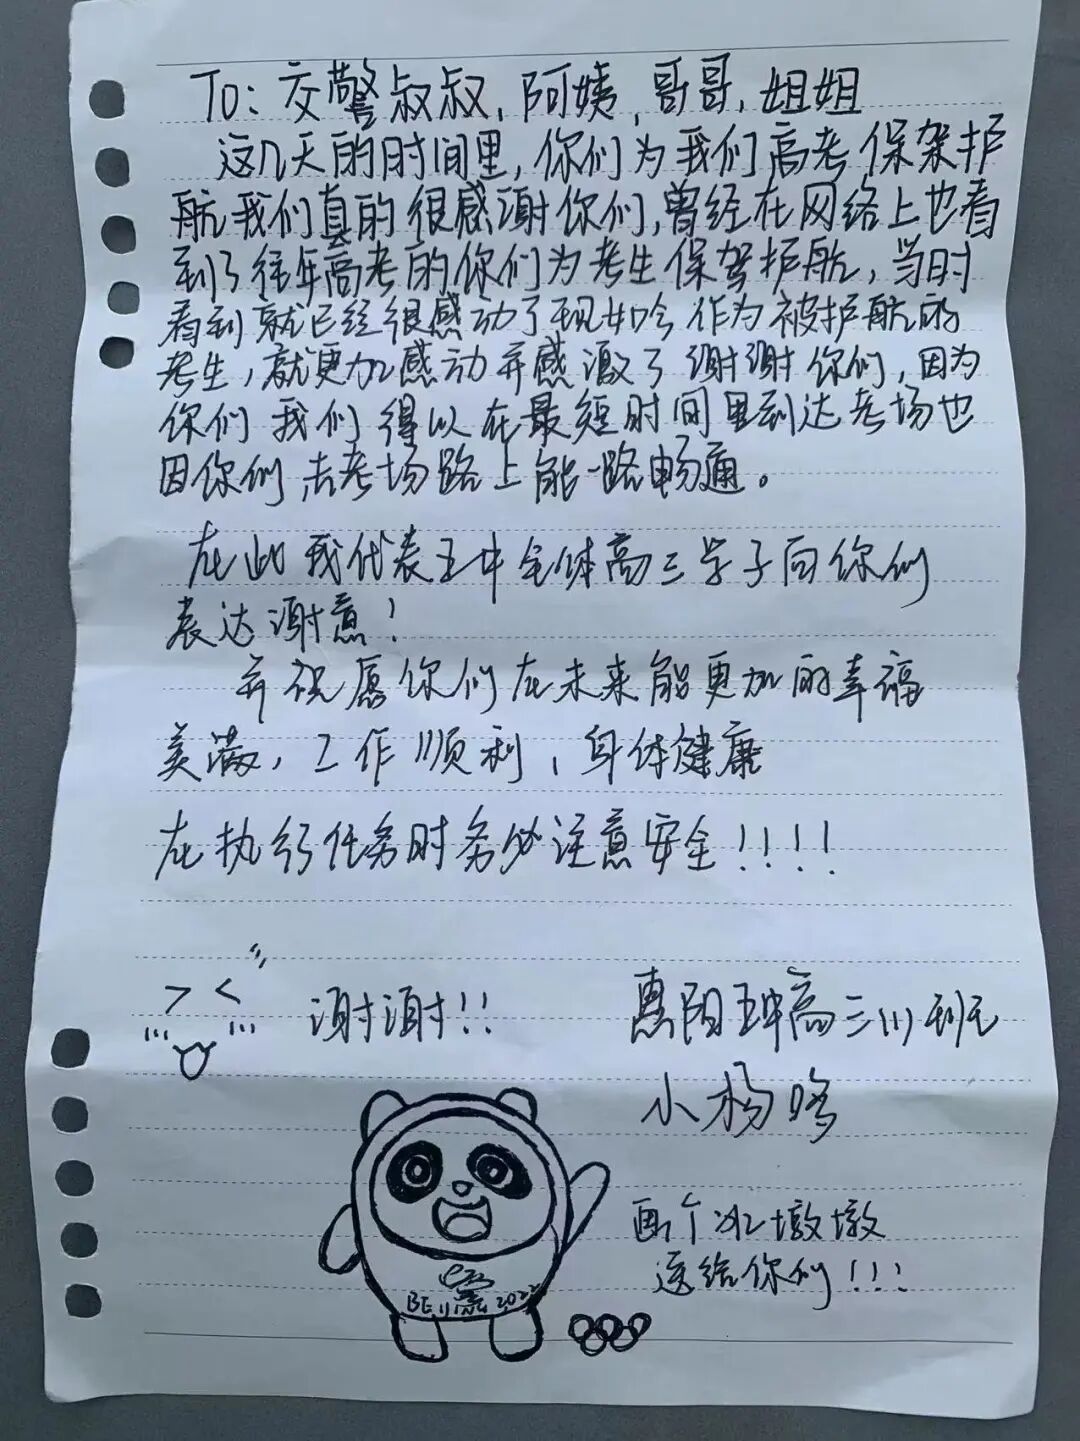 To: 交警叔叔, 阿姨, 哥哥, 姐姐
这几天的时间里, 你们为我们高考保驾护
航我们真的很感谢你们, 曾经在网络上也看
到了往年高考的你们为考生保驾护航, 当时
看到就已经很感动了现如今作为被护航的
考生, 就更加感动并感激了谢谢你们, 因为
你们我们得以在最短时间里到达考场也
因你们去考场路上能一路畅通。
在此我代表五中全体高三学子向你们
表达谢意!
并祝愿你们在未来能更加的幸福
美满, 工作顺利, 身体健康
在执行任务时务必注意安全!!!!
谢谢!!
惠阳五中高三(1)班
小杨
画个冰墩墩
送给你们!!!
BEIJING 2022